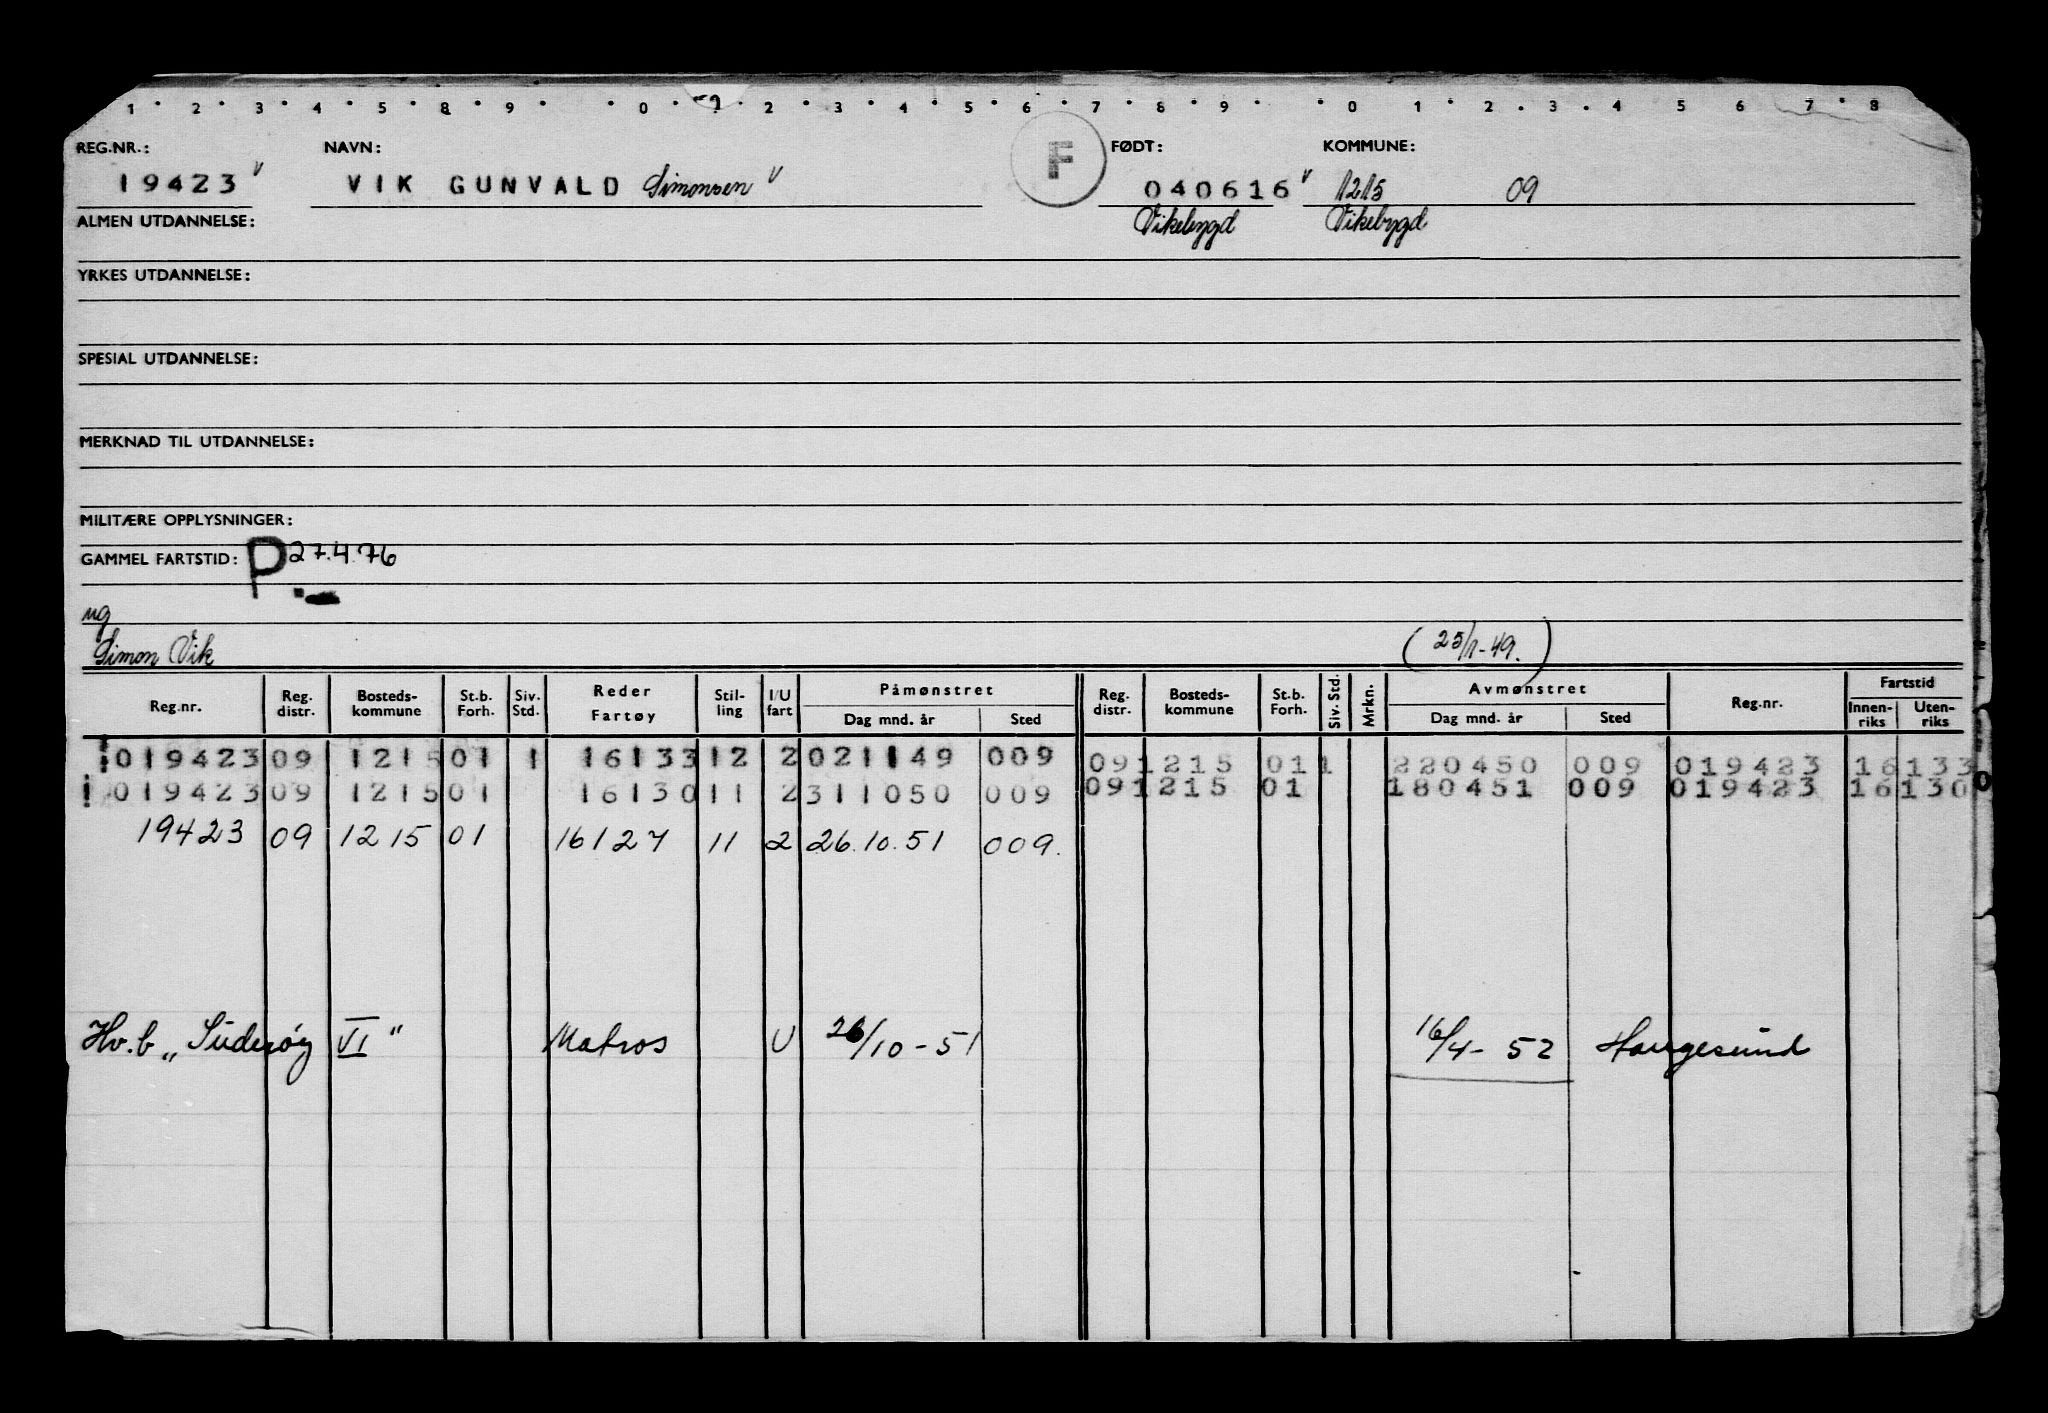 1 · 2 · 3 · 4 · 5 · 8 · 9 · · 0 · 1 · 2 · 3 · 4 · 5 · 6 · 7 · 8 · 9 · · 0 · 1 · 2 · 3 · 4 5 6 7 · 8
REG.NR.: NAVN: F FØDT: KOMMUNE:
19423 v VIK GUNVALD Simonsen v 040616 v 1215 09
ALMEN UTDANNELSE: Vikebygd Vikebygd
YRKES UTDANNELSE:
SPESIAL UTDANNELSE:
MERKNAD TIL UTDANNELSE:
MILITÆRE OPPLYSNINGER:
GAMMEL FARTSTID: P 27.4.76
ug
Simon Vik (25/1-49.)
Reg.nr. Reg. distr. Bosteds- kommune St.b. Forh. Siv. Std. Reder Fartøy Stil- ling I/U fart Påmønstret Dag mnd. år Sted Reg. distr. Bosteds- kommune St.b. Forh. Siv. Std. Mrkn. Avmønstret Dag mnd. år Sted Reg.nr. Fartstid Innen- riks Uten- riks
019423 09 1215 01 1 16133 12 2 021149 009 09 1215 01 1 220450 009 019423 16133
019423 09 1215 01 16130 11 2 311050 009 09 1215 01 180451 009 019423 16130
19423 09 1215 01 16127 11 2 26.10.51 009.
Hv.b „Süderøy VI" Matros U 26/10-51 16/4-52 Haugesund